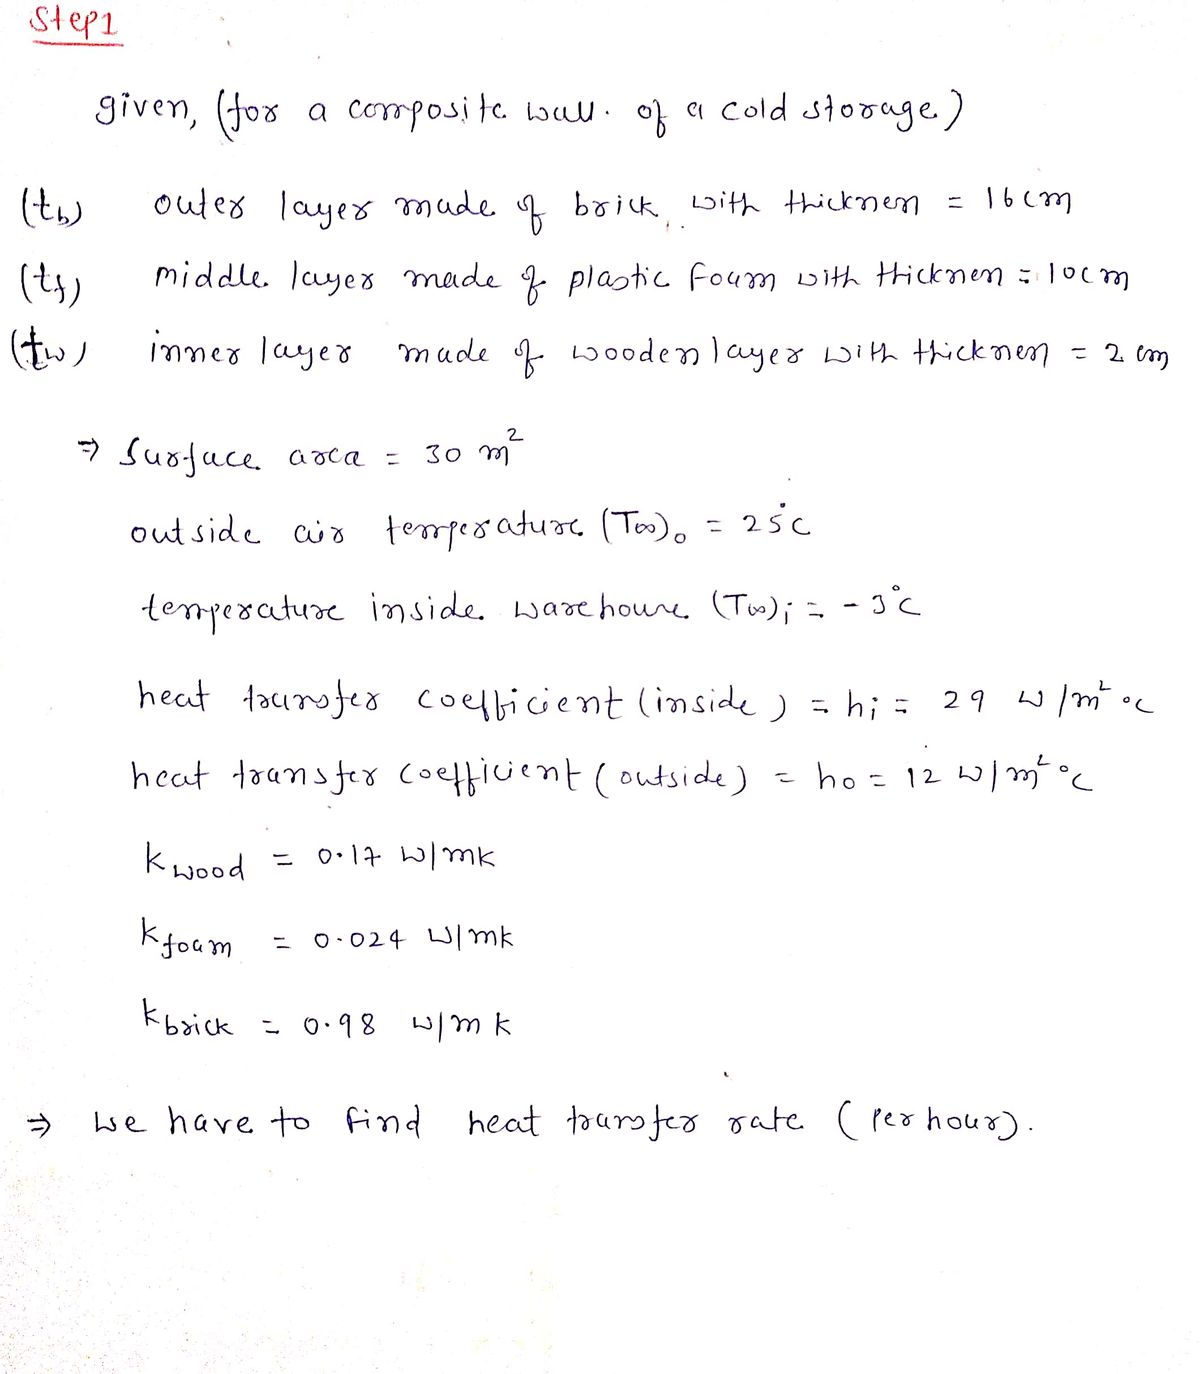 Step1
given, (for a composite wall. of a cold storage)
(tb) outer layer made of brick with thickness = 16cm
(tf) middle layer made of plastic foam with thickness = 10cm
(tw) inner layer made of wooden layer with thickness = 2 cm
⇒ Surface area = 30 m²
outside air temperature (T∞)o = 25°c
temperature inside warehouse (T∞)i = -3°c
heat transfer coefficient (inside) = hi = 29 W/m²°c
heat transfer coefficient (outside) = ho = 12 W/m²°c
kwood = 0.17 W/mk
kfoam = 0.024 W/mk
kbrick = 0.98 W/mk
⇒ we have to find heat transfer rate (per hour).